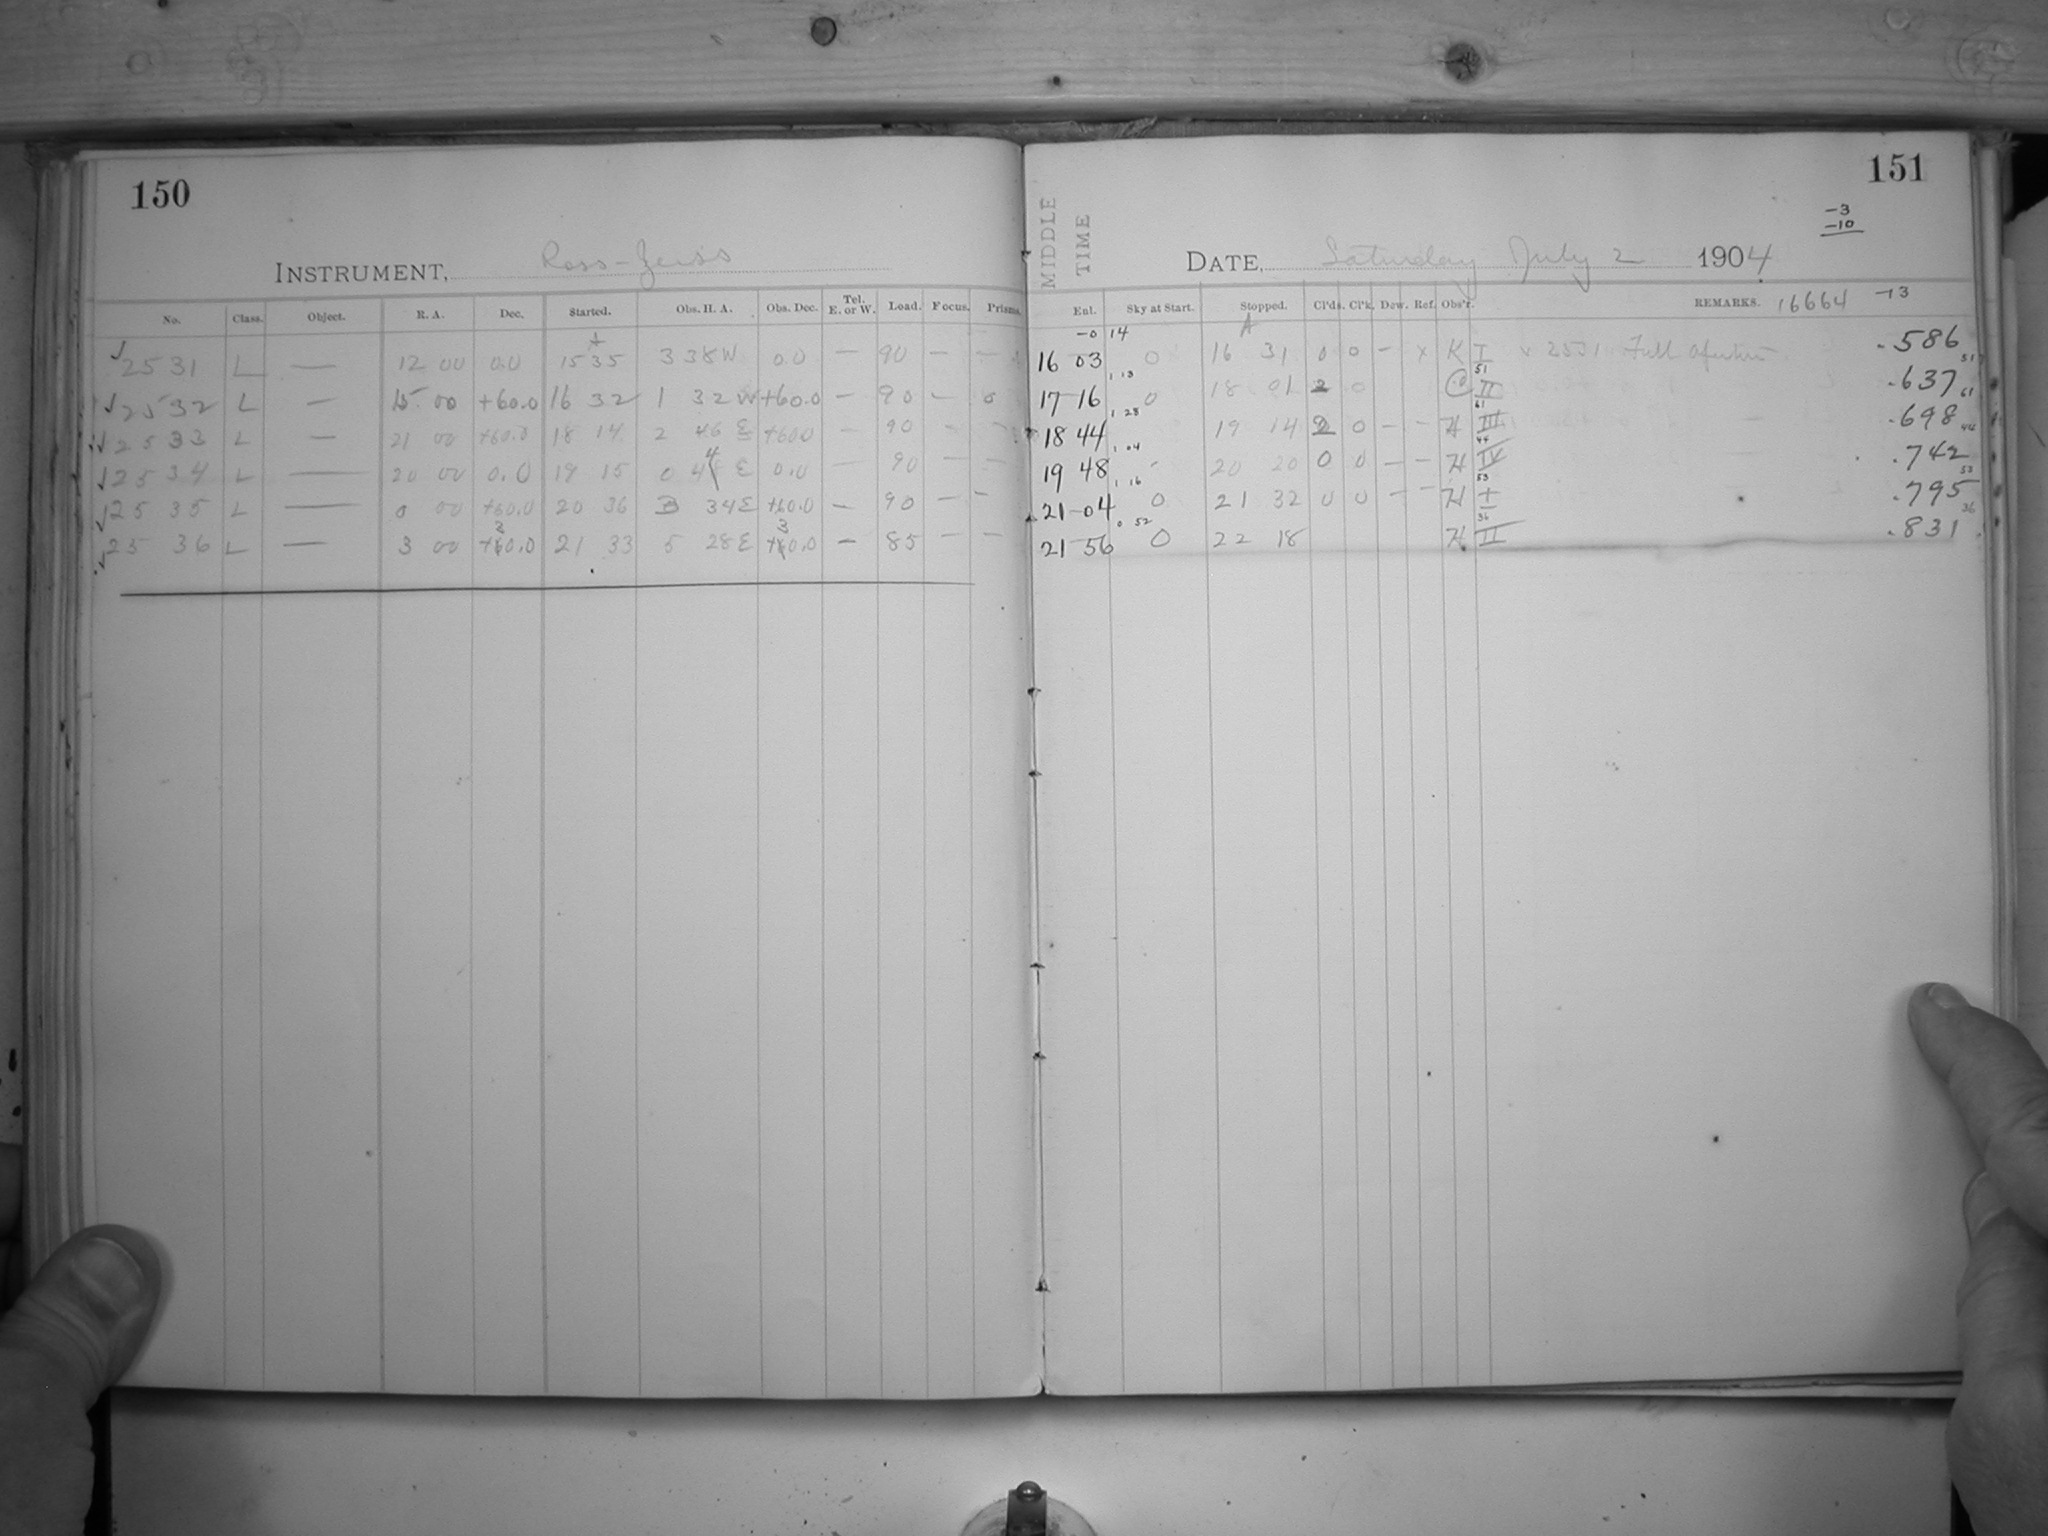 150
INSTRUMENT, Ross-Zeiss
No. Class. Object. R. A. Dec. Started. Obs. H. A. Obs. Dec. Tel. E. or W. Load. Focus. Prisms.
✓2531 L — 12 00 0.0 15 35 3 38 W 0.0 — 90 — —
✓2532 L — 15 00 +60.0 16 32 1 32 W +60.0 — 90 — 0
✓2533 L — 21 00 +60.0 18 14 2 46 E +60.0 — 90 — —
✓2534 L — 20 00 0.0 19 15 0 44 E 0.0 — 90 — —
✓2535 L — 0 00 +60.0 20 36 3 34 E +60.0 — 90 — —
✓2536 L — 3 00 +30.0 21 33 5 28 E +30.0 — 85 — —
151
-3
-10
MIDDLE TIME
DATE, Saturday July 2 1904
Enl. Sky at Start. Stopped. Cl'ds. Cl'k. Dew. Ref. Obs'r. REMARKS. 16664 -13
-0 14
16 03 0 16 31 0 0 — x K I x 2531 Full Aperture .586
1 13 51 51
17 16 0 18 01 2 0 C II .637
1 28 61 61
18 44 19 14 2 0 — — H III .698
1 04 44 44
19 48 - 20 20 0 0 — — H IV .742
1 16 53 53
21 04 0 21 32 0 0 — — H I .795
0 52 36 36
21 56 0 22 18 H II .831